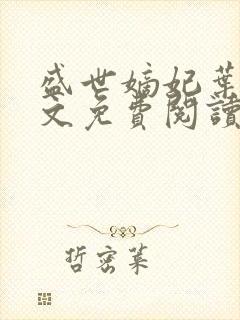 盛世嫡妃葉
文免費閱讀
哲密葉